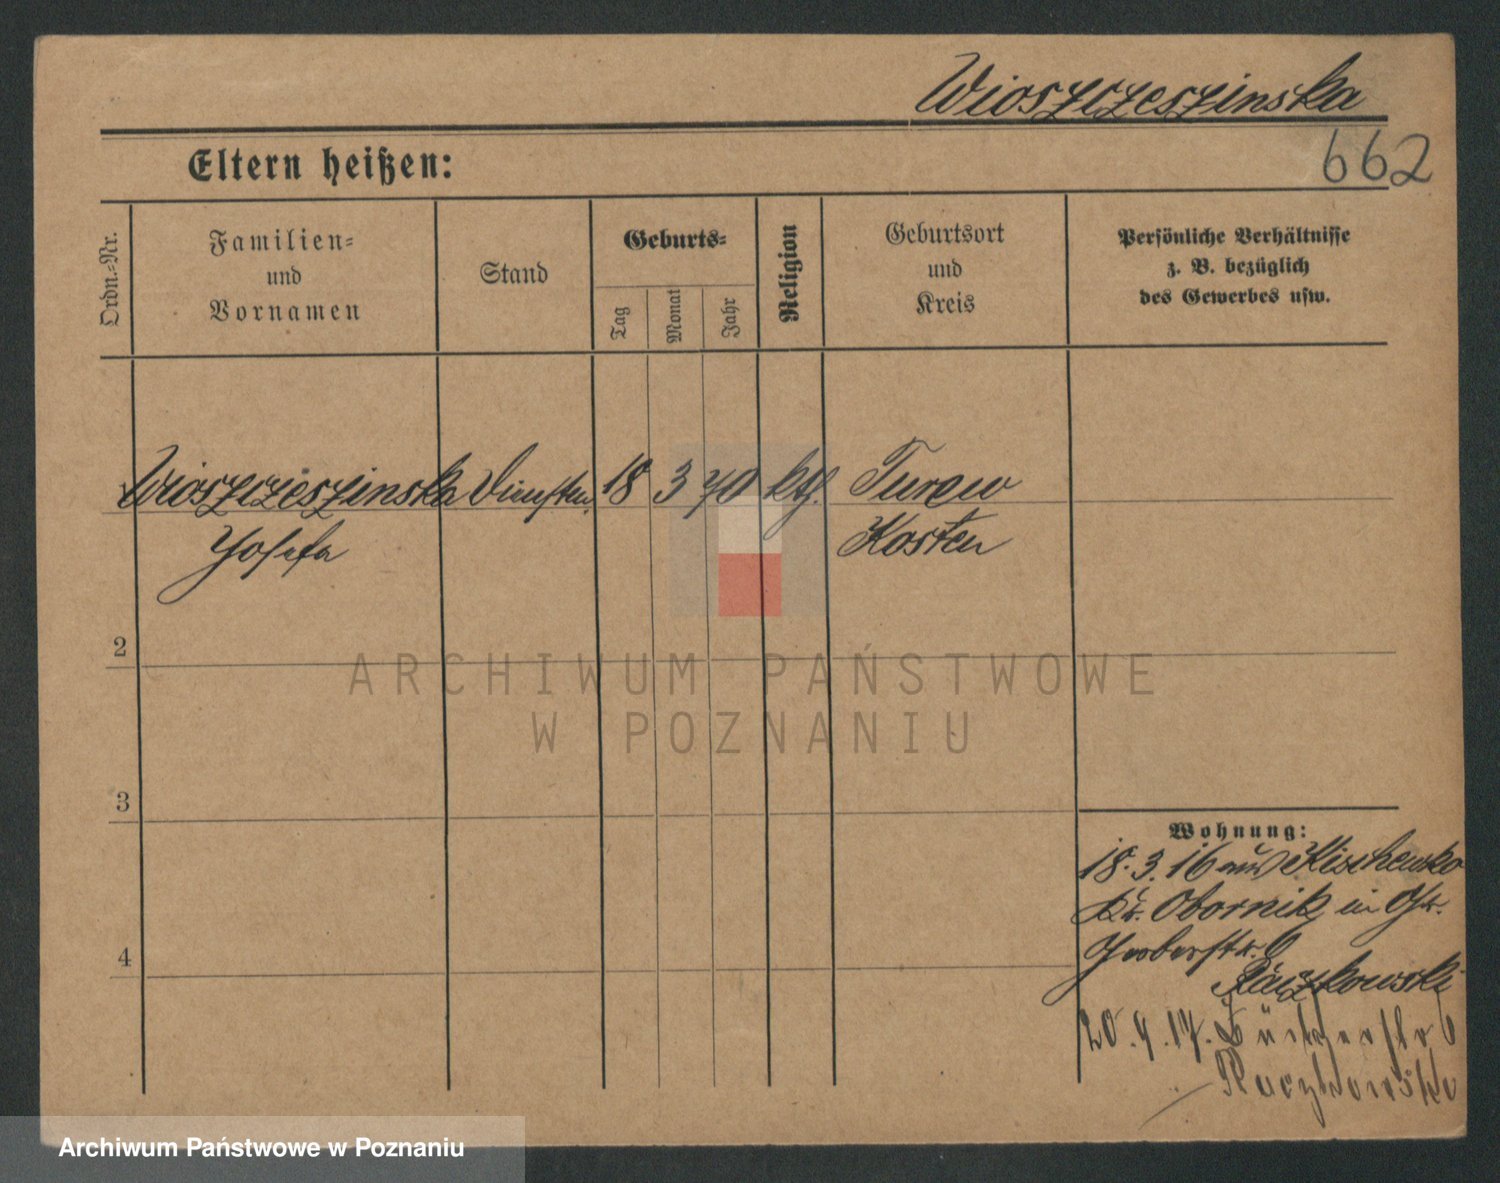 Wioszczeszinska
662
Eltern heißen:
Ordn.-Nr.
Familien-
und
Vornamen
Stand
Geburts-
Tag
Monat
Jahr
Religion
Geburtsort
und
Kreis
Persönliche Verhältnisse
z. B. bezüglich
des Gewerbes usw.
Wioszczeszinska
18 3 70 kth. Turew
Josefa
Kosten
2
ARCHIWUM PAŃSTWOWE
W POZNANIU
3
Wohnung:
18.3.16 aus Kischewko
Kr. Obornik in
Gerberstr. 6
Raczkowski
4
20.4.17. 6
Raczkowski
Archiwum Państwowe w Poznaniu